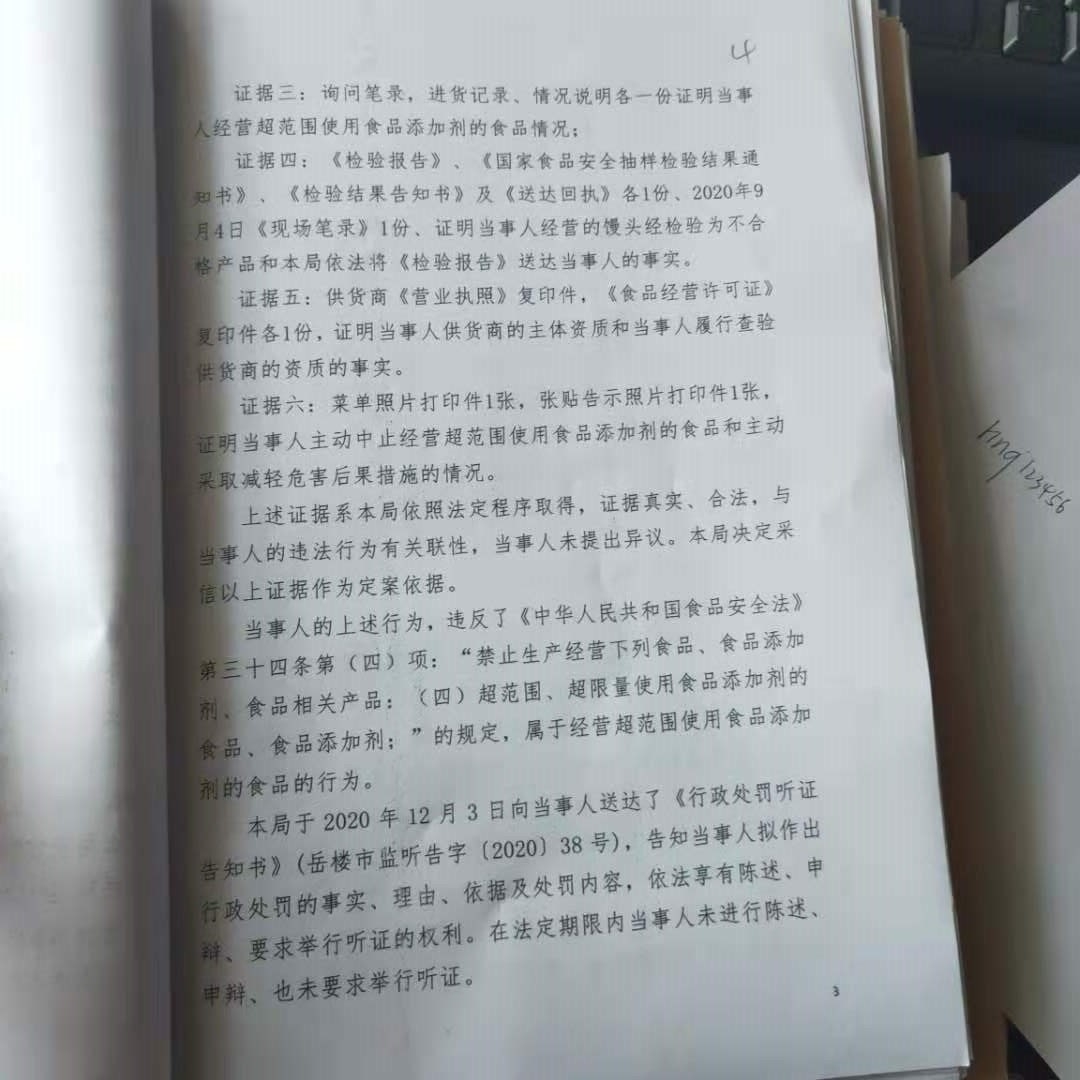 4
证据三：询问笔录，进货记录、情况说明各一份证明当事
人经营超范围使用食品添加剂的食品情况；
证据四：《检验报告》、《国家食品安全抽样检验结果通
知书》、《检验结果告知书》及《送达回执》各1份、2020年9
月4日《现场笔录》1份、证明当事人经营的馒头经检验为不合
格产品和本局依法将《检验报告》送达当事人的事实。
证据五：供货商《营业执照》复印件，《食品经营许可证》
复印件各1份，证明当事人供货商的主体资质和当事人履行查验
供货商的资质的事实。
证据六：菜单照片打印件1张，张贴告示照片打印件1张，
证明当事人主动中止经营超范围使用食品添加剂的食品和主动
采取减轻危害后果措施的情况。
上述证据系本局依照法定程序取得，证据真实、合法，与
当事人的违法行为有关联性，当事人未提出异议。本局决定采
信以上证据作为定案依据。
当事人的上述行为，违反了《中华人民共和国食品安全法》
第三十四条第（四）项：“禁止生产经营下列食品、食品添加
剂、食品相关产品：（四）超范围、超限量使用食品添加剂的
食品、食品添加剂；”的规定，属于经营超范围使用食品添加
剂的食品的行为。
本局于 2020 年 12 月 3 日向当事人送达了《行政处罚听证
告知书》(岳楼市监听告字〔2020〕38 号)，告知当事人拟作出
行政处罚的事实、理由、依据及处罚内容，依法享有陈述、申
辩、要求举行听证的权利。在法定期限内当事人未进行陈述、
申辩、也未要求举行听证。
3
hnq123456